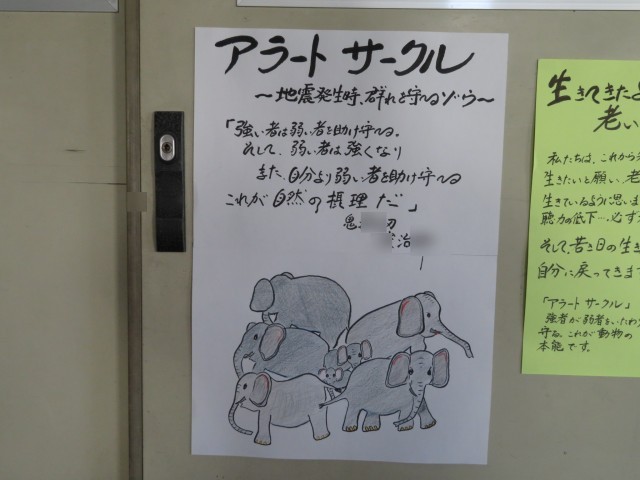 アラート サークル
〜地震発生時、群れを守るゾウ〜
「強い者は弱い者を助け守る。
そして、弱い者は強くなり
また、自分より弱い者を助け守る
これが自然の摂理だ」
治
生きてきた
老い
私たちは、これから
生きたいと願い、老
生きているように思いま
聴力の低下…必ず
そして、若き日の生き
自分に戻ってきます
「アラート サークル」
強者が弱者をいたわり
守る。これが動物の
本能です。